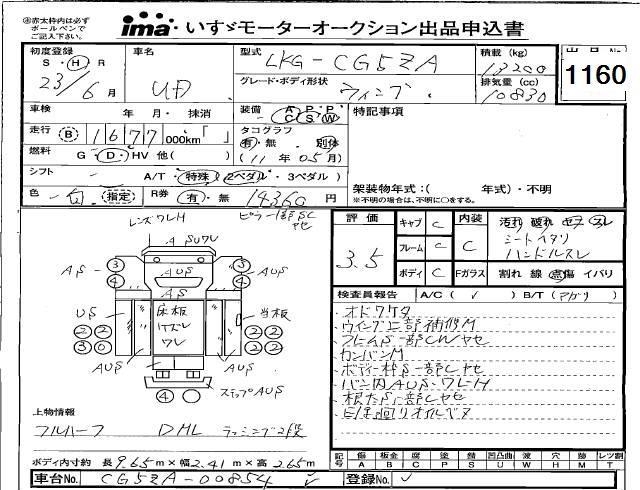 ㊟赤太枠内は必ず
ボールペンで
ご記入下さい。
ima いすゞモーターオークション出品申込書
初度登録
S・H・R
23/6月
車名
UD
型式
LKG-CG5ZA
グレード・ボディ形状
ウィング
積載(kg)
13200
排気量(cc)
10830
出品No.
1160
車検 年・月・抹消
走行 B 1677 000km「 」
燃料 G・D・HV 他( )
装備 A P P
C S W
タコグラフ
有・無 別体
(11年05月)
特記事項
シフト - A/T・特殊(2ペダル・3ペダル)
色 白 指定
R券 有・無 14360円
架装物年式:( 年式)・不明
※不明の場合は、不明に○をする。
レンズワレH
ピラー1部SC
ヤセ
ASワレ
AS
AUS
AS
AUS
US
床板
ワレ
当板
AUS
AUS
ステップAUS
③ ③
④ ④
② ② ② ②
③ ⓪ ② ②
④
評価
3.5
キャブ C
フレーム C
ボディ C
内装
C
Fガラス
汚れ 破れ コゲ スレ
シートヘタリ
ハンドルスレ
割れ 線 点傷 イバリ
検査員報告 A/C( ✓ ) B/T(アガリ)
オドワケタ
ウイング上部補修M
フレームS一部CWヤセ
カンバンM
ボデー枠S一部Cヤセ
バン内AUS・ワレH
根太S一部Cヤセ
E/g廻りオイルベタ
上物情報
フルハーフ DHL ラッシング2段
ボディ内寸約 長9.65m×幅2.41m×高2.65m
記号 傷A 板金B 腐C 塗P 錆S 凹凸曲U 波W 穴H 跡M レンズ割T
車台No. CG5ZA-00854
登録No.